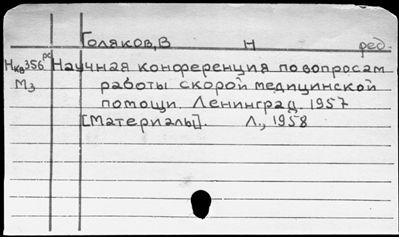 Голяков, В Н ред.
Нкв356рс Научная конференция по вопросам
М3 работы скорой медицинской
помощи. Ленинград. 1957
[Материалы]. Л., 1958